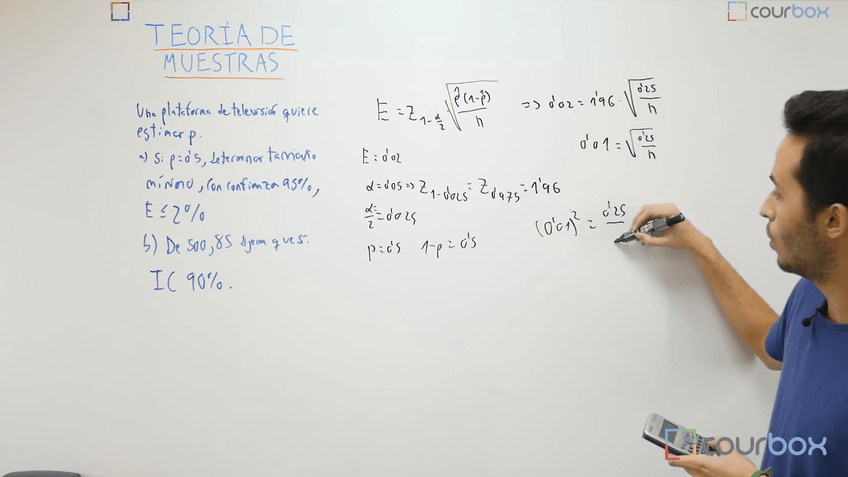 courbox
TEORÍA DE
MUESTRAS
Una plataforma de televisión quiere
estimar p.
a) Si p=0'5, determinar tamaño
mínimo, con confianza 95%,
E ≤ 2%
b) De 500, 85 dijeron que sí.
IC 90%.
E = Z_{1-α/2} · √(p̂(1-p̂)/n) => 0'02 = 1'96 · √(0'25/n)
0'01 = √(0'25/n)
E = 0'02
α = 0'05 => Z_{1-0'025} = Z_{0'975} = 1'96
α/2 = 0'025
p = 0'5 1-p = 0'5
(0'01)² = 0'25
courbox